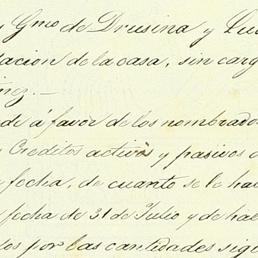 Gmo de Drusina y Lu
acion de la casa, sin carg
nez.—
de á favor de los nombrado
Creditos activos y pasivos d
fecha, de cuanto se le ha
fecha de 31 de Julio y de ha
los por las cantidades sig